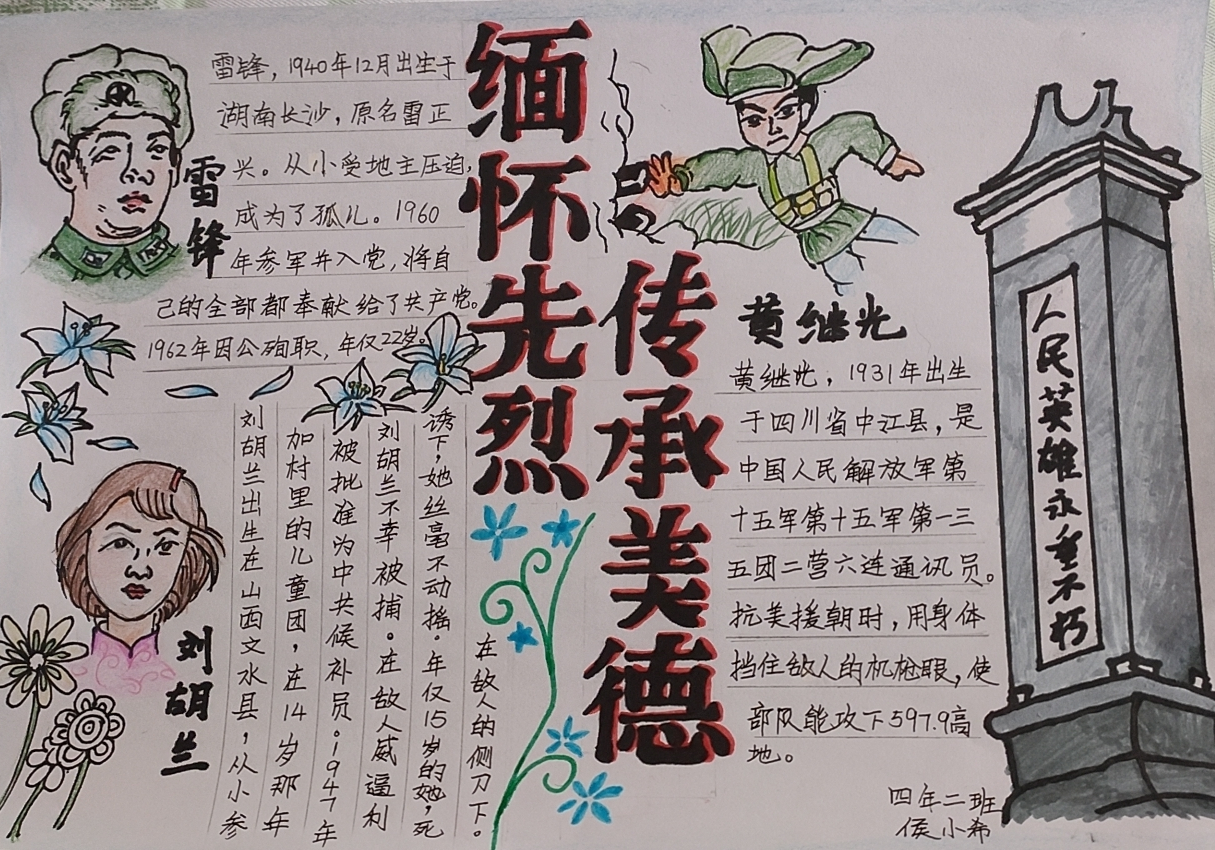 缅怀先烈
传承美德
雷锋
雷锋，1940年12月出生于
湖南长沙，原名雷正
兴。从小受地主压迫，
成为了孤儿。1960
年参军并入党，将自
己的全部都奉献给了共产党。
1962年因公殉职，年仅22岁。
刘胡兰
刘胡兰出生在山西文水县，从小参
加村里的儿童团，在14岁那年
被批准为中共候补员。1947年
刘胡兰不幸被捕。在敌人威逼利
诱下，她丝毫不动摇。年仅15岁的她，死
在敌人的侧刀下。
黄继光
黄继光，1931年出生
于四川省中江县，是
中国人民解放军第
十五军第十五军第一三
五团二营六连通讯员。
抗美援朝时，用身体
挡住敌人的机枪眼，使
部队能攻下597.9高
地。
人民英雄永垂不朽
四年二班
侯小希